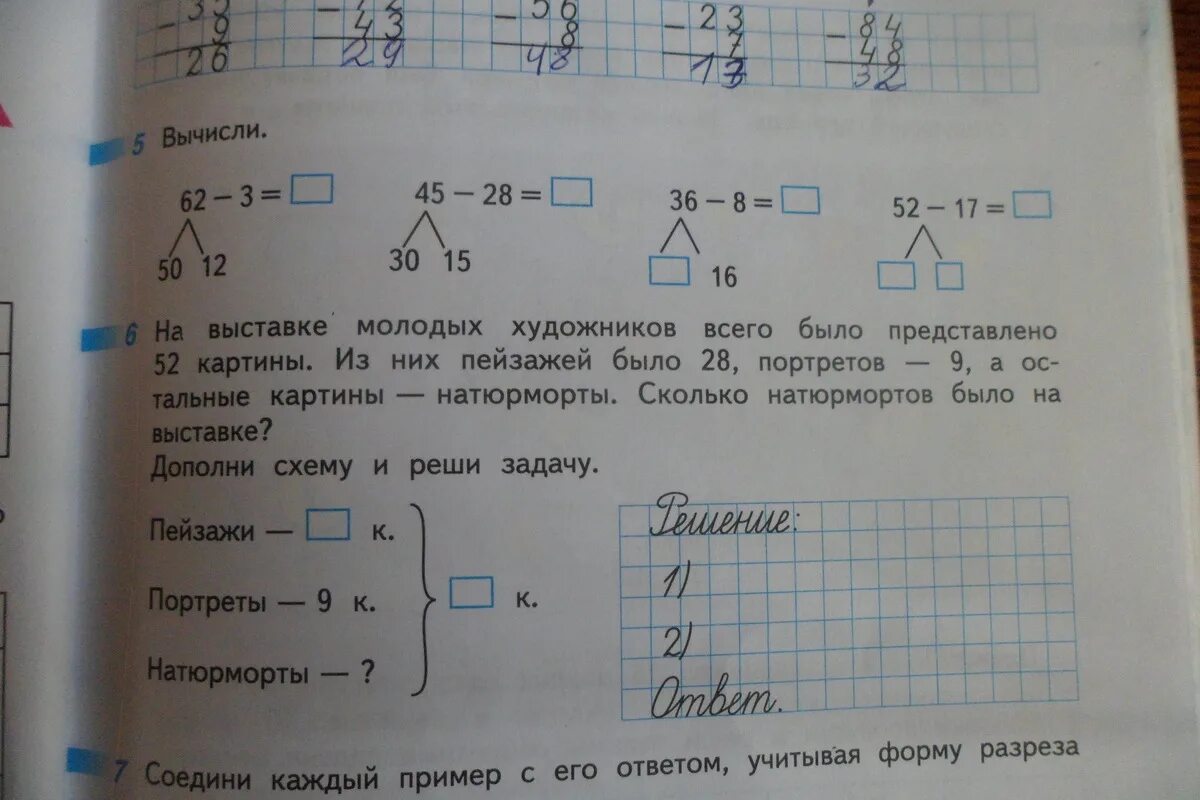 - 23
- 84
9 43 8 7 48
26 29 48 1 32
5 Вычисли.
62 – 3 = 45 – 28 = 36 – 8 = 52 – 17 =
50 12 30 15 16
6 На выставке молодых художников всего было представлено
52 картины. Из них пейзажей было 28, портретов — 9, а ос-
тальные картины — натюрморты. Сколько натюрмортов было на
выставке?
Дополни схему и реши задачу.
Пейзажи — к.
Портреты — 9 к.
к.
Натюрморты — ?
Решение:
1)
2)
Ответ.
7 Соедини каждый пример с его ответом, учитывая форму разреза